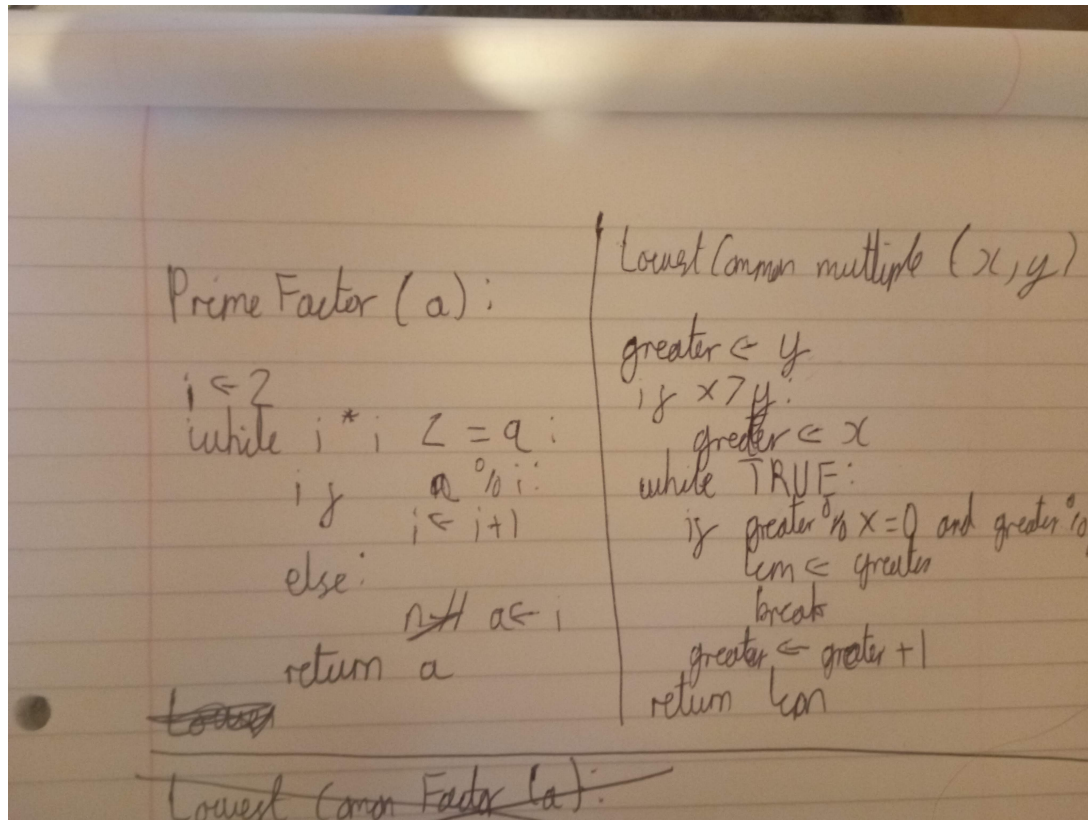 Prime Factor (a):
i ← 2
while i * i <= a:
if a % i:
i ← i+1
else:
a ← i
return a
Lowest Common Factor (a):
Lowest Common multiple (x, y)
greater ← y
if x > y:
greater ← x
while TRUE:
if greater % x = 0 and greater %
lcm ← greater
break
greater ← greater + 1
return lcm